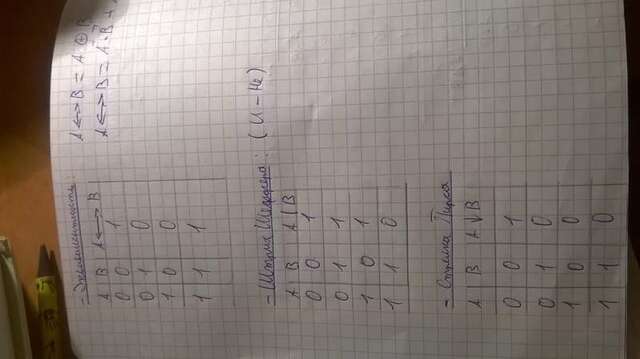 - Эквивалентность:
A B A <-> B
0 0 1
0 1 0
1 0 0
1 1 1
A <-> B = A ⊕ B
A <-> B = A · B +
- Штрих Шеффера: (И - НЕ)
A B A | B
0 0 1
0 1 1
1 0 1
1 1 0
- Стрелка Пирса
A B A ↓ B
0 0 1
0 1 0
1 0 0
1 1 0